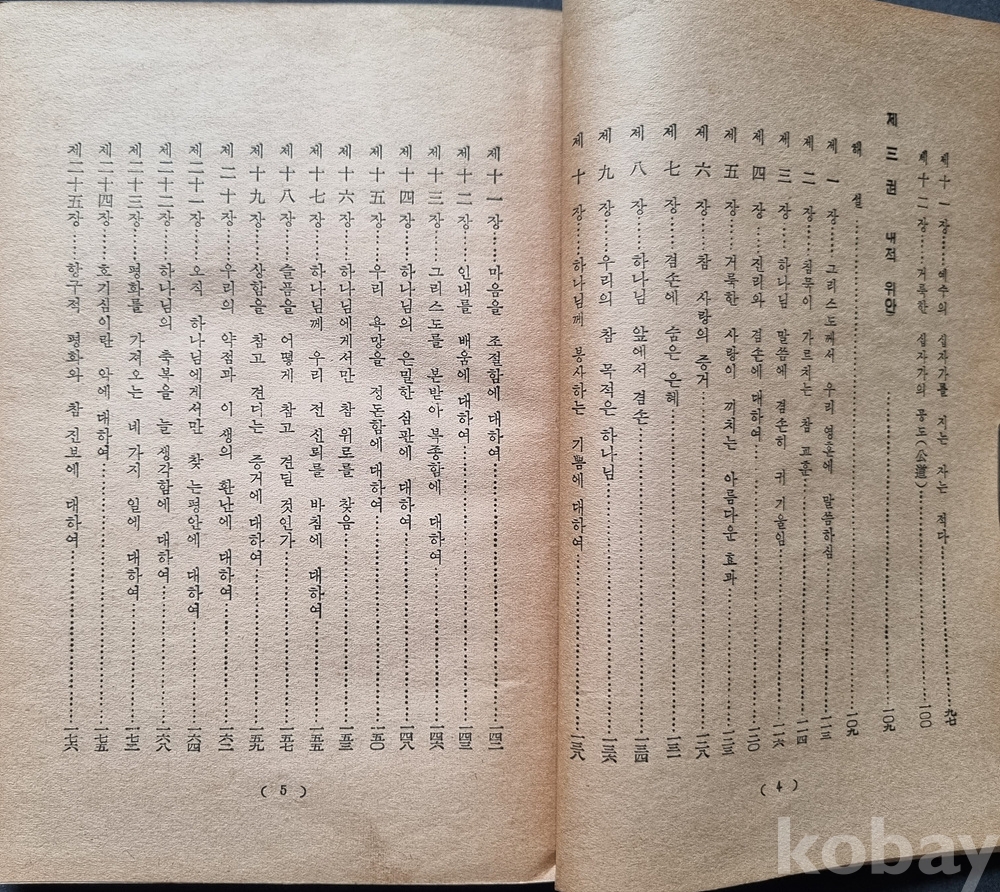 제十一장……예수의 십자가를 지는 자는 적다……九七
제十二장……거룩한 십자가의 공도(公道)……一〇〇
제 三 권 내적 위안……一〇九
해 설……一〇九
제 一 장……그리스도께서 우리 영혼에 말씀하심……一一三
제 二 장……침묵이 가르치는 참 교훈……一一四
제 三 장……하나님 말씀에 겸손히 귀 기울임……一一六
제 四 장……진리와 겸손에 대하여……一二〇
제 五 장……거룩한 사랑이 끼치는 아름다운 효과……一二三
제 六 장……참 사랑의 증거……一二八
제 七 장……겸손에 숨은 은혜……一三一
제 八 장……하나님 앞에서 겸손……一三四
제 九 장……우리의 참 목적은 하나님……一三六
제 十 장……하나님께 봉사하는 기쁨에 대하여……一三八
( 4 )
제十一장……마음을 조절함에 대하여……一四一
제十二장……인내를 배움에 대하여……一四三
제十三장……그리스도를 본받아 복종함에 대하여……一四六
제十四장……하나님의 은밀한 심판에 대하여……一四八
제十五장……우리 욕망을 정돈함에 대하여……一五〇
제十六장……하나님에게서만 참 위로를 찾음……一五三
제十七장……하나님께 우리 전 신뢰를 바침에 대하여……一五五
제十八장……슬픔을 어떻게 참고 견딜 것인가……一五七
제十九장……상함을 참고 견디는 증거에 대하여……一五九
제二十장……우리의 약점과 이 생의 환난에 대하여……一六二
제二十一장……오직 하나님에게서만 찾 는평안에 대하여……一六四
제二十二장……하나님의 축복을 늘 생각함에 대하여……一六八
제二十三장……평화를 가져오는 네 가지 일에 대하여……一七三
제二十四장……호기심이란 악에 대하여……一七五
제二十五장……항구적 평화와 참 진보에 대하여……一七六
( 5 )
kobay